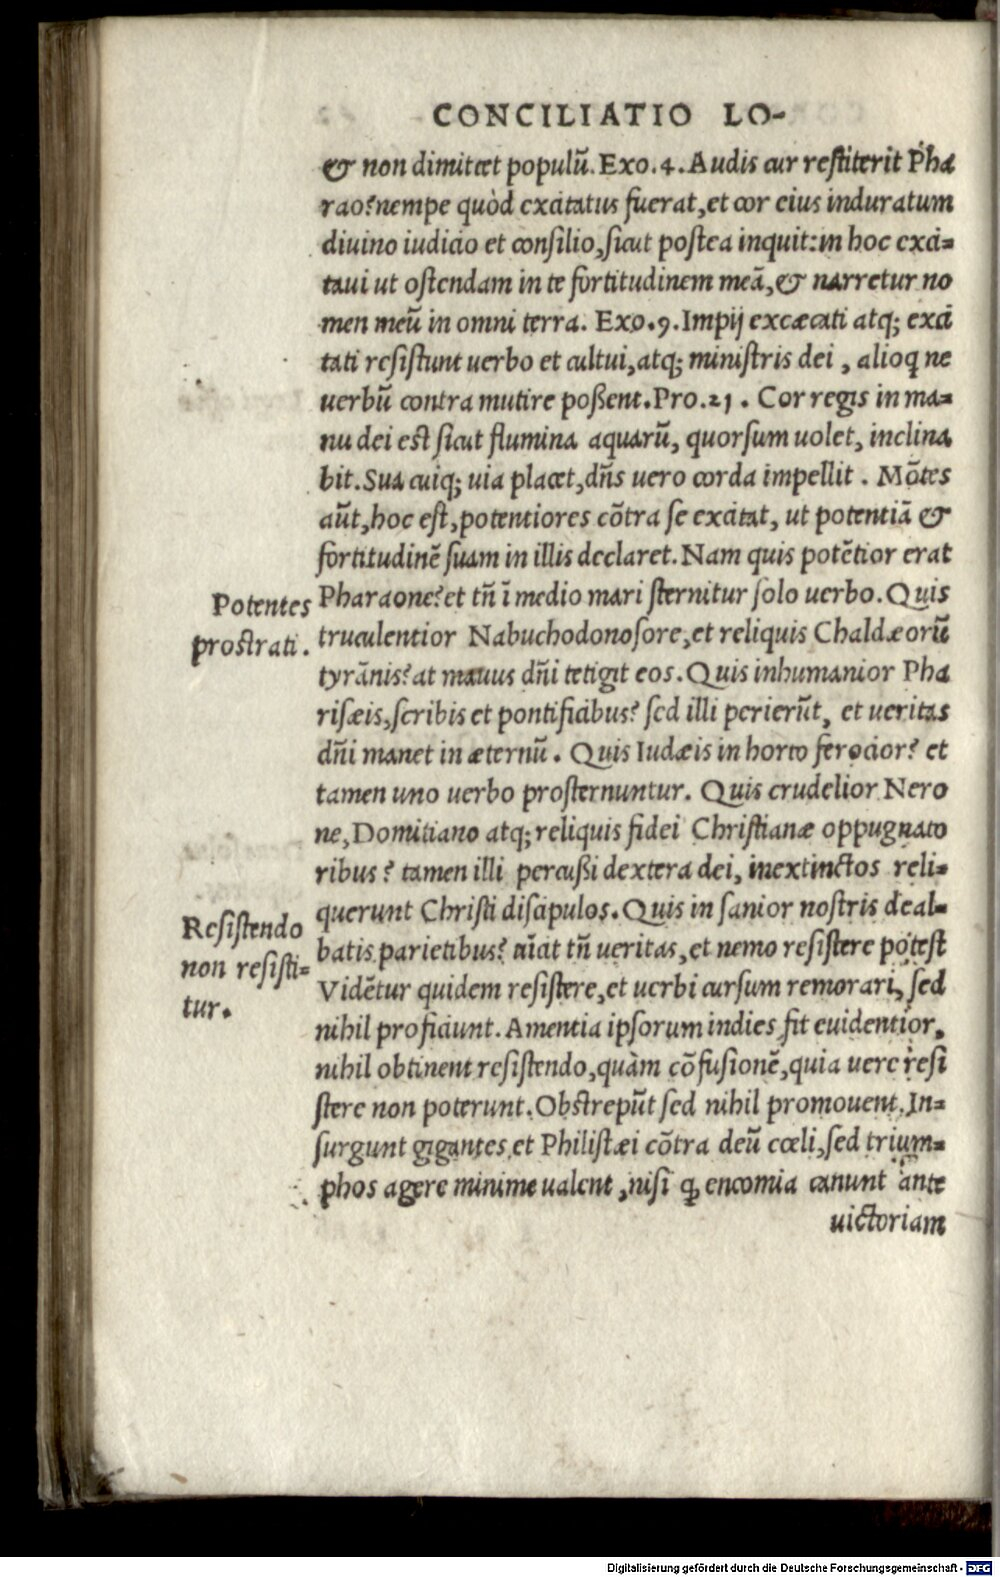 CONCILIATIO LO-
& non dimittet populū. Exo. 4. Audis cur restiterit Pha
rao? nempe quòd excitatus fuerat, et cor eius induratum
divino iudicio et consilio, sicut postea inquit: in hoc exci=
taui ut ostendam in te fortitudinem meā, & narretur no
men meū in omni terra. Exo. 9. Impij excæcati atq; exci
tati resistunt uerbo et cultui, atq; ministris dei, alioq ne
uerbū contra mutire poßent. Pro. 21. Cor regis in ma=
nu dei est sicut flumina aquarū, quorsum uolet, inclina
bit. Sua cuiq; uia placet, dñs uero corda impellit. Mōtes
aūt, hoc est, potentiores cōtra se excitat, ut potentiā &
fortitudinē suam in illis declaret. Nam quis potētior erat
Potentes
prostrati.
Pharaone? et tñ ī medio mari sternitur solo uerbo. Quis
truculentior Nabuchodonosore, et reliquis Chaldæorū
tyrānis? at manus dñi tetigit eos. Quis inhumanior Pha
risæis, scribis et pontificibus? sed illi perierūt, et ueritas
dñi manet in æternū. Quis Iudæis in horto ferocior? et
tamen uno uerbo prosternuntur. Quis crudelior Nero
ne, Domitiano atq; reliquis fidei Christianæ oppugnato
ribus? tamen illi percußi dextera dei, inextinctos reli=
querunt Christi discipulos. Quis in sanior nostris deal=
Resistendo
non resisti=
tur.
batis parietibus? uīcit tñ ueritas, et nemo resistere potest
Vidētur quidem resistere, et uerbi cursum remorari, sed
nihil proficiunt. Amentia ipsorum indies fit euidentior,
nihil obtinent resistendo, quàm cōfusionē, quia uere resi
stere non poterunt. Obstrepūt sed nihil promouent. In=
surgunt gigantes et Philistæi cōtra deū cœli, sed trium=
phos agere minime ualent, nisi ꝙ encomia canunt ante
uictoriam
Digitalisierung gefördert durch die Deutsche Forschungsgemeinschaft - DFG